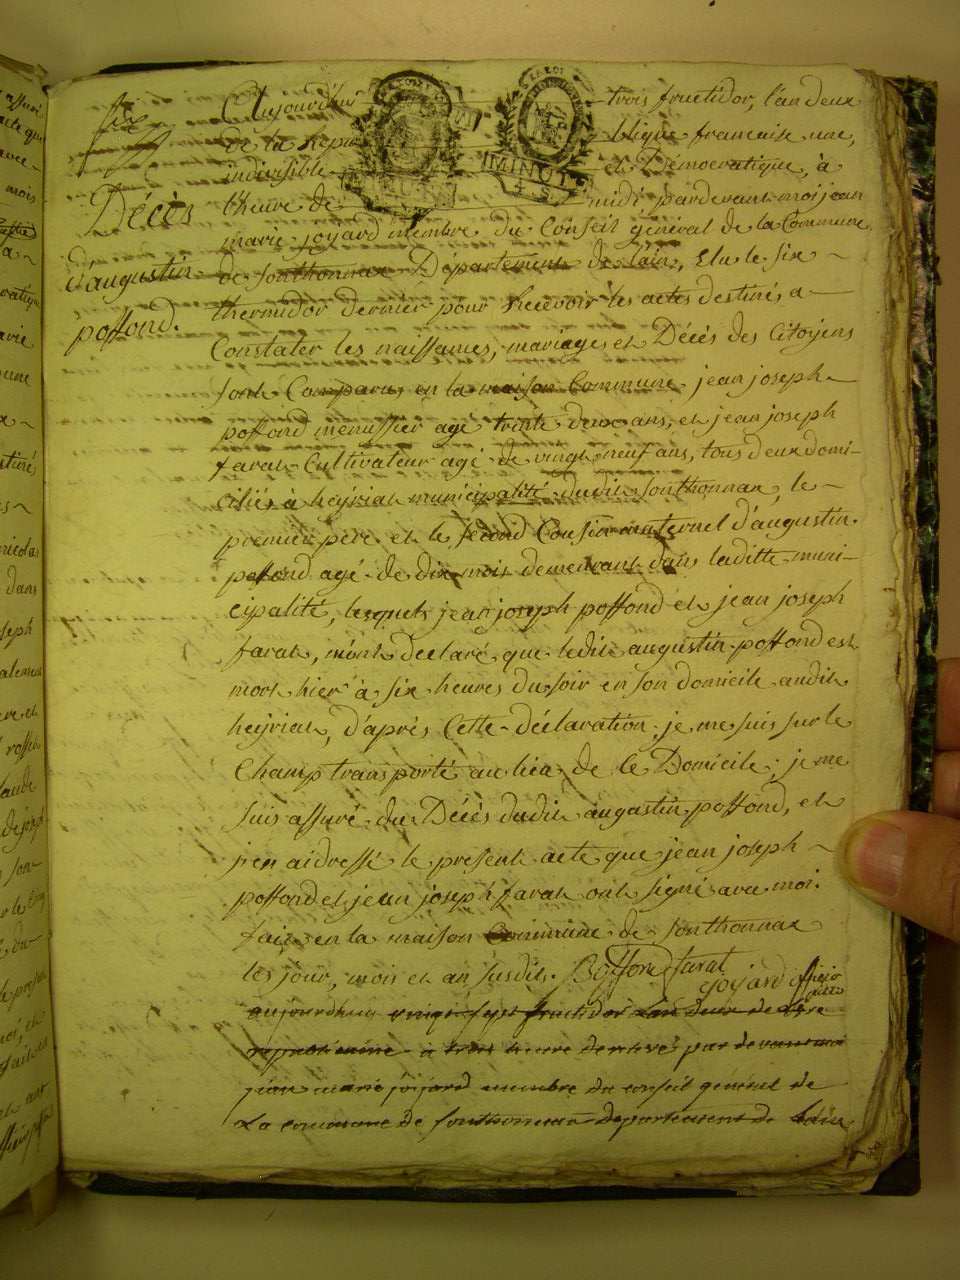 six
Décès
d'augustin
poffond.
Aujourdhui trois fructidor, l'an deux
de la Repu blique francaise une,
indivisible et Démocratique, à
l'heure de midi pardevant moi jean
LA LOI
MINUTE
marie joyard membre du Conseil général de la Commune
de sonthonnax Département de l'ain, Elu le six
thermidor dernier pour Recevoir les actes destinés a
Constater les naissances, mariages et Décès des Citoyens
sont Comparus en la maison Commune jean joseph
poffond menussier agé trente deux ans, et jean joseph
farat Cultivateur agé de vingt neuf ans, tous deux domi-
ciliés à heÿriat municipalité dudit sonthonnax, le
premier père et le second Cousin maternel d'augustin
poffond agé de dix mois demeurant dans laditte muni-
cipalité, lesquels jean joseph poffond et jean joseph
farat, m'ont déclaré que ledit augustin poffond est
mort hier à six heures du soir en son domicile audit
heÿriat, d'après Cette déclaration je me suis sur le
Champ transporté au lieu de le Domicile, je me
suis assuré du Décès dudit augustin poffond, et
j'en ai dressé le present acte que jean joseph
poffond et jean joseph farat ont signé avec moi.
fait en la maison Commune de sonthonnax
les jour, mois et an susdits. Boffond farat
joyard officier
aujourdhui vingt sept fructidor l'an deux de l'ere
republicaine a trois heure par devant moi
jean marie joijard membre du conseil général de
La commune de sonthonnax departement de l'ain